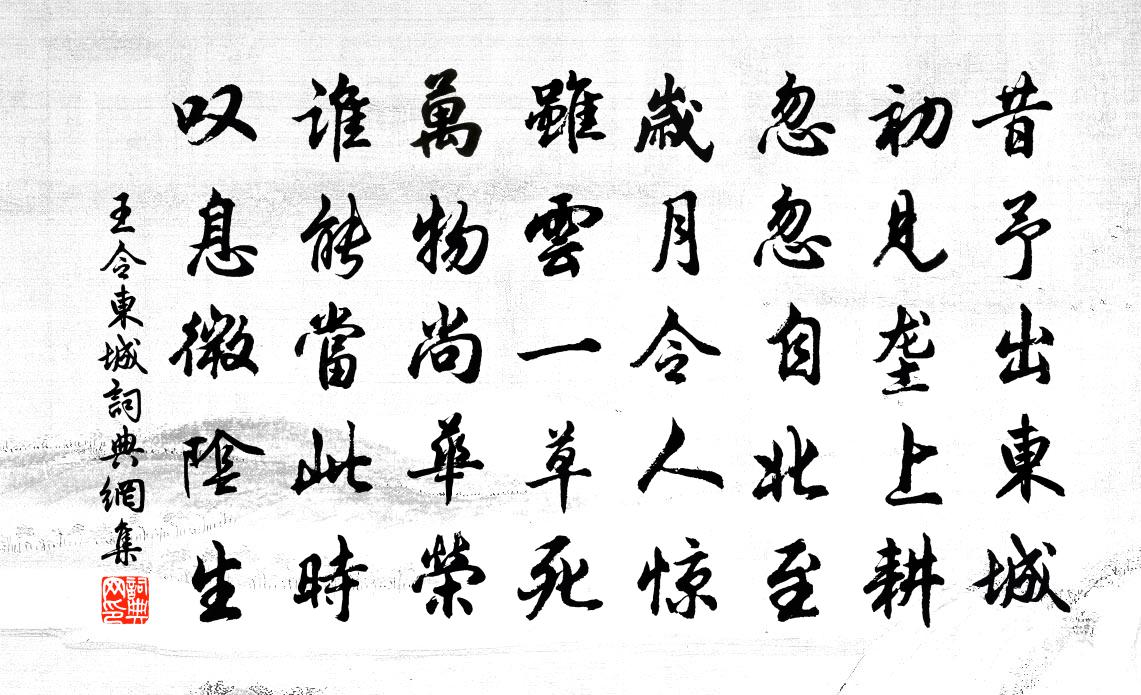 昔予出東城
初見垄上耕
忽忽自北至
歲月令人惊
雖雲一草死
萬物尚華榮
谁能當此時
叹息微陰生
王令東城詞典網集
詞典网印